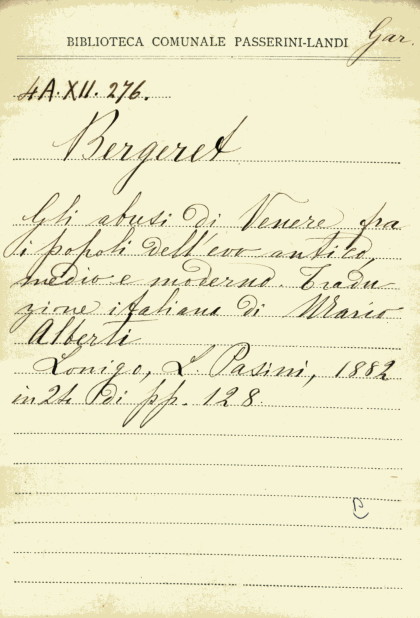 Gar.
BIBLIOTECA COMUNALE PASSERINI-LANDI
4A.XII.276.
Bergeret
Gli abusi di Venere fra
i popoli dell'evo antico,
medio e moderno. Tradu-
zione italiana di Mario
Alberti
Lonigo, L. Pasini, 1882
in 24 di pp. 128